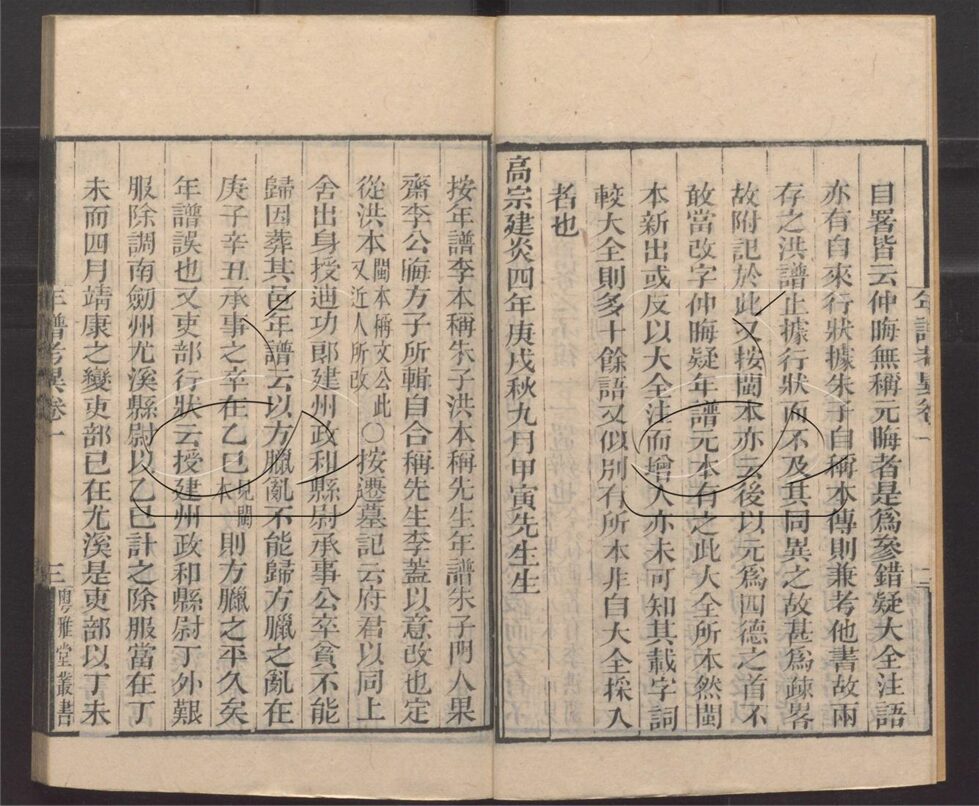 年譜考異卷一
二
自署皆云仲晦無稱元晦者是爲參錯疑大全注語
亦有自來行狀據朱子自稱本傳則兼考他書故兩
存之洪譜止據行狀而不及其同異之故甚爲疎畧
故附記於此又按閩本亦云後以元爲四德之首不
敢當改字仲晦疑年譜元本有之此大全所本然閩
本新出或反以大全注而增入亦未可知其載字詞
較大全則多十餘語又似別有所本非自大全採入
者也
高宗建炎四年庚戌秋九月甲寅先生生
按年譜李本稱朱子洪本稱先生年譜朱子門人果
齋李公晦方子所輯自合稱先生李蓋以意改也定
從洪本閩本稱文公此又近人所改○按遷墓記云府君以同上
舍出身授迪功郎建州政和縣尉承事公卒貧不能
歸因葬其邑年譜云以方臘亂不能歸方臘之亂在
庚子辛丑承事之卒在乙巳見閩本則方臘之平久矣
年譜誤也又吏部行狀云授建州政和縣尉丁外艱
服除調南劔州尤溪縣尉以乙巳計之除服當在丁
未而四月靖康之變吏部已在尤溪是吏部以丁未
年譜考異卷一
三
粵雅堂叢書